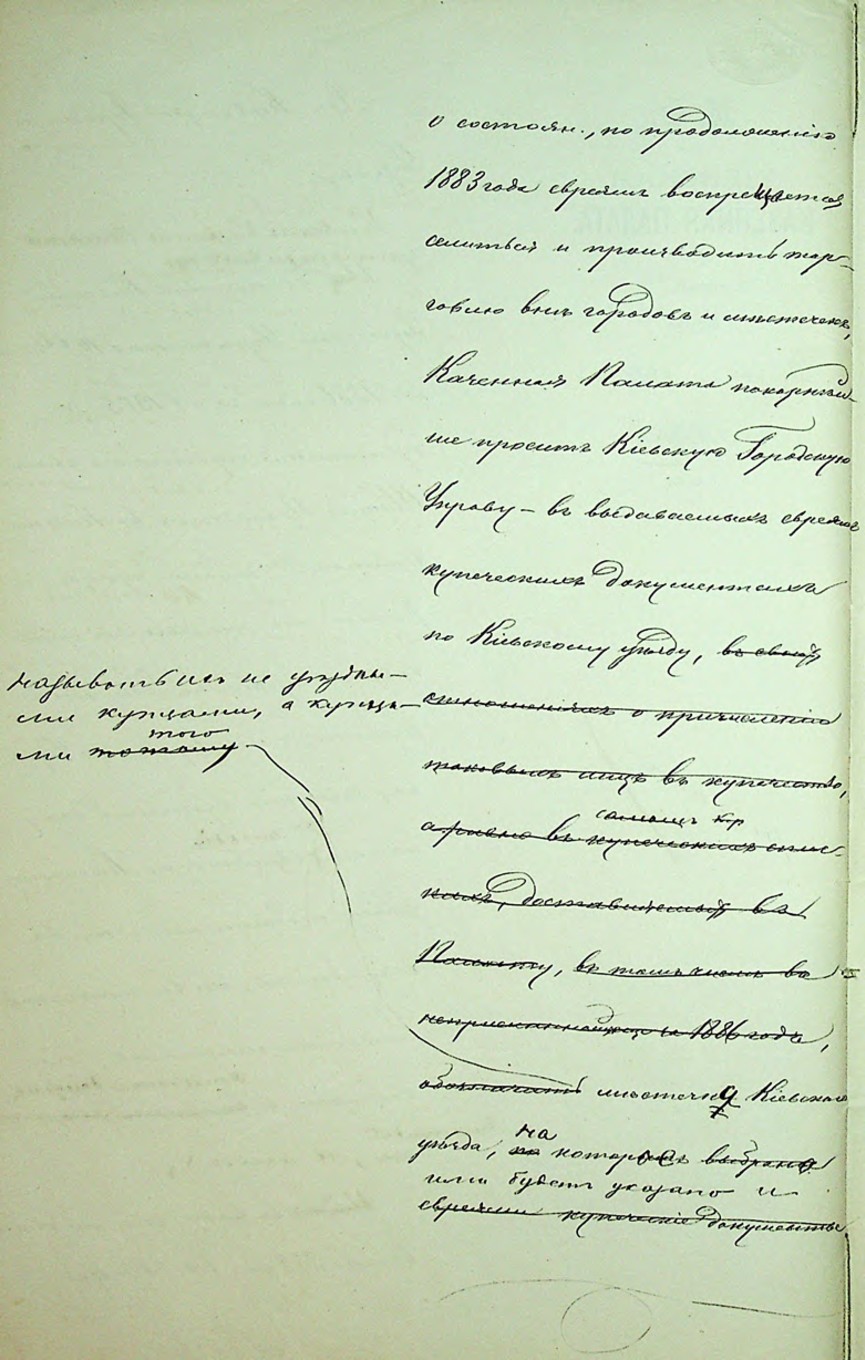 о состоян., по продолженію
1883 года евреямъ воспрещается
селиться и производить тор-
говлю внѣ городовъ и мѣстечекъ,
Казенная Палата покорнѣй-
ше проситъ Кіевскую Городскую
Управу – въ выдаваемыхъ евреямъ
купеческихъ документахъ
по Кіевскому уѣзду, въ своихъ
сношеніяхъ о причисленіи
таковыхъ лицъ въ купечество,
самыхъ кр
а равно въ купеческихъ спис-
кахъ, доставляемыхъ въ
Палату, въ томъ числѣ въ
за 1886 годъ,
обозначать мѣстечка Кіевскаго
на
уѣзда, которое выбраны
ими будетъ указано и
евреями купеческіе документы
называть ихъ не уѣздны-
ми купцами, а купца-
того
ми